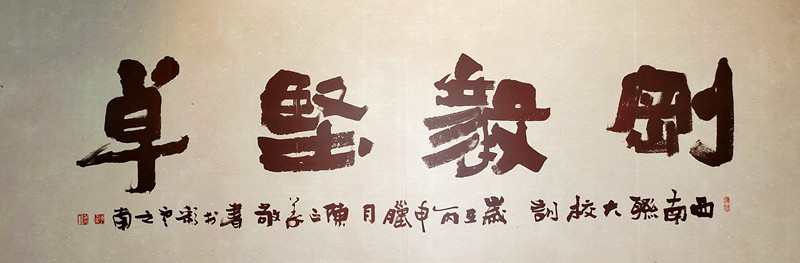 剛毅堅卓
西南聯大校訓 歲在丙申臘月陳正義敬書於彩云之南